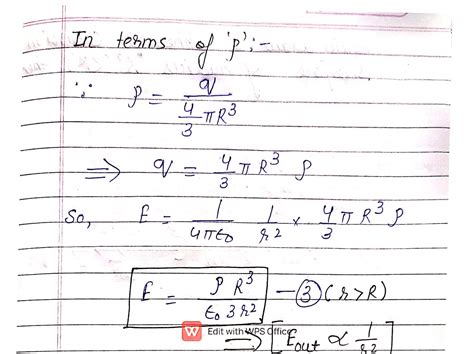 In terms of 'ρ':-
∵ ρ = q / (4/3 πR³)
⟹ q = 4/3 πR³ ρ
So, E = 1/4πε₀ 1/r² × 4/3 πR³ ρ
E = ρR³/ε₀3r² - ③ (r>R)
Edit with WPS Office
⟹ [E_out ∝ 1/r²]